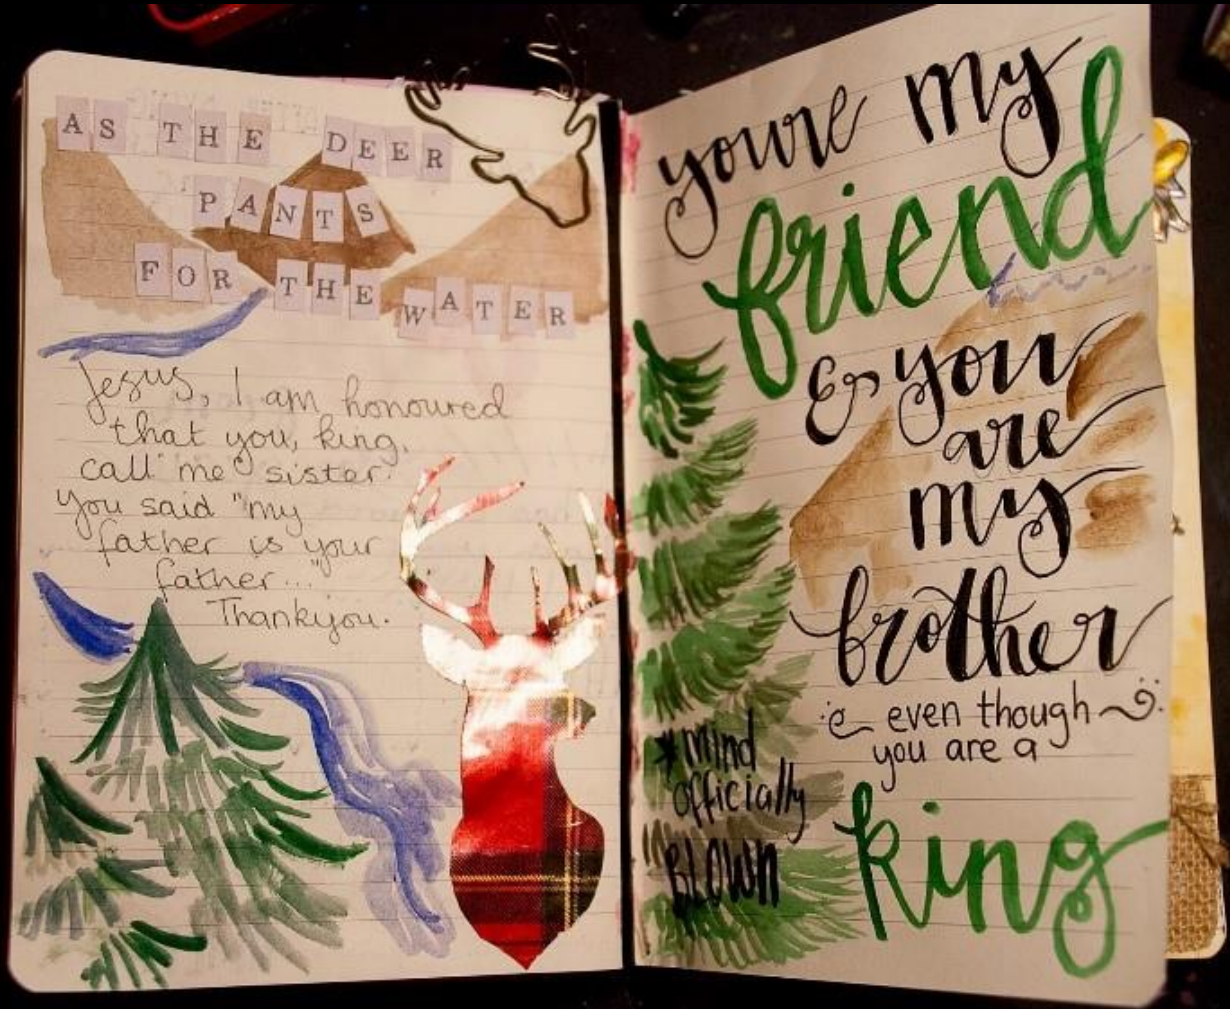 AS THE DEER
PANTS
FOR THE WATER
Jesus, I am honoured
that you, king,
call me sister.
You said "my
father is your
father..."
Thankyou.
you're my
friend
& you
are
my
brother
even though
you are a
king
*mind
officially
BLOWN